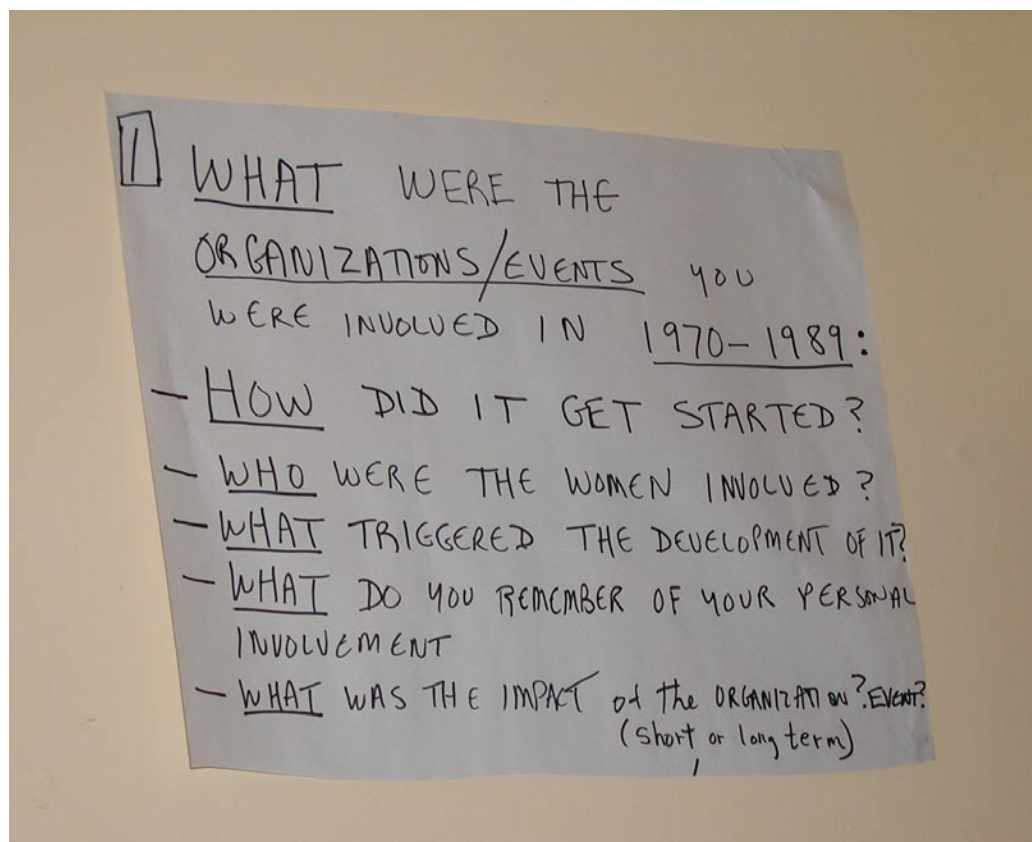 1 WHAT WERE THE
ORGANIZATIONS/EVENTS YOU
WERE INVOLVED IN 1970-1989:
- HOW DID IT GET STARTED?
- WHO WERE THE WOMEN INVOLVED?
- WHAT TRIGGERED THE DEVELOPMENT OF IT?
- WHAT DO YOU REMEMBER OF YOUR PERSONAL
INVOLVEMENT
- WHAT WAS THE IMPACT of the ORGANIZATION? EVENT?
(short or long term)